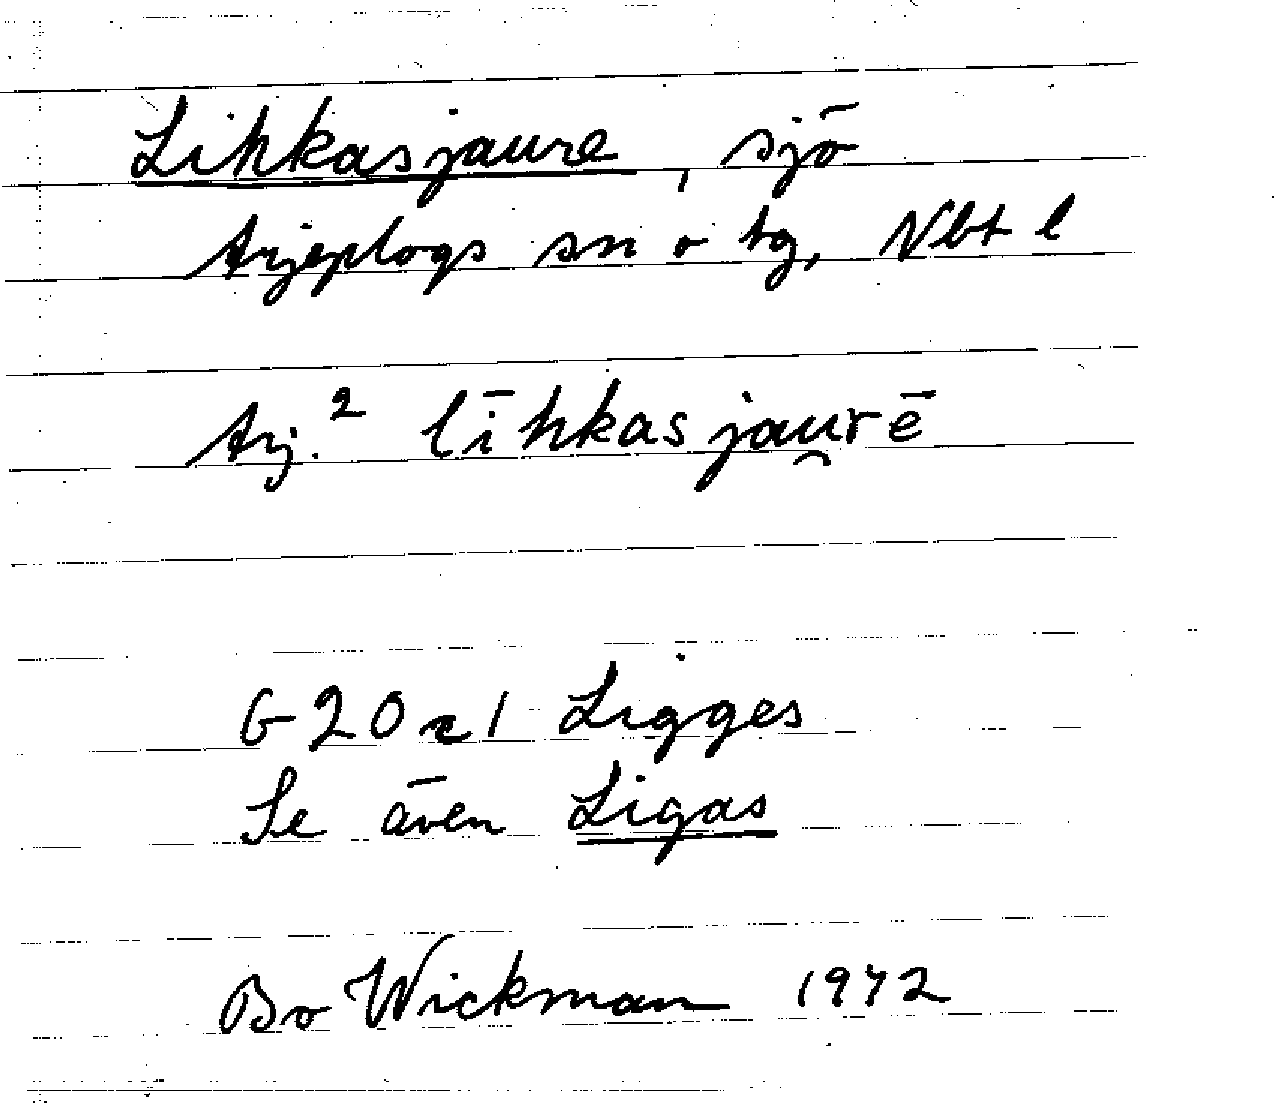 Lihkasjaure, sjö
Arjeplogs sn o tg, Nbt l
Arj.² līhkasjau̯rē
G 20 z 1 Ligges
Se även Ligas
Bo Wickman 1942